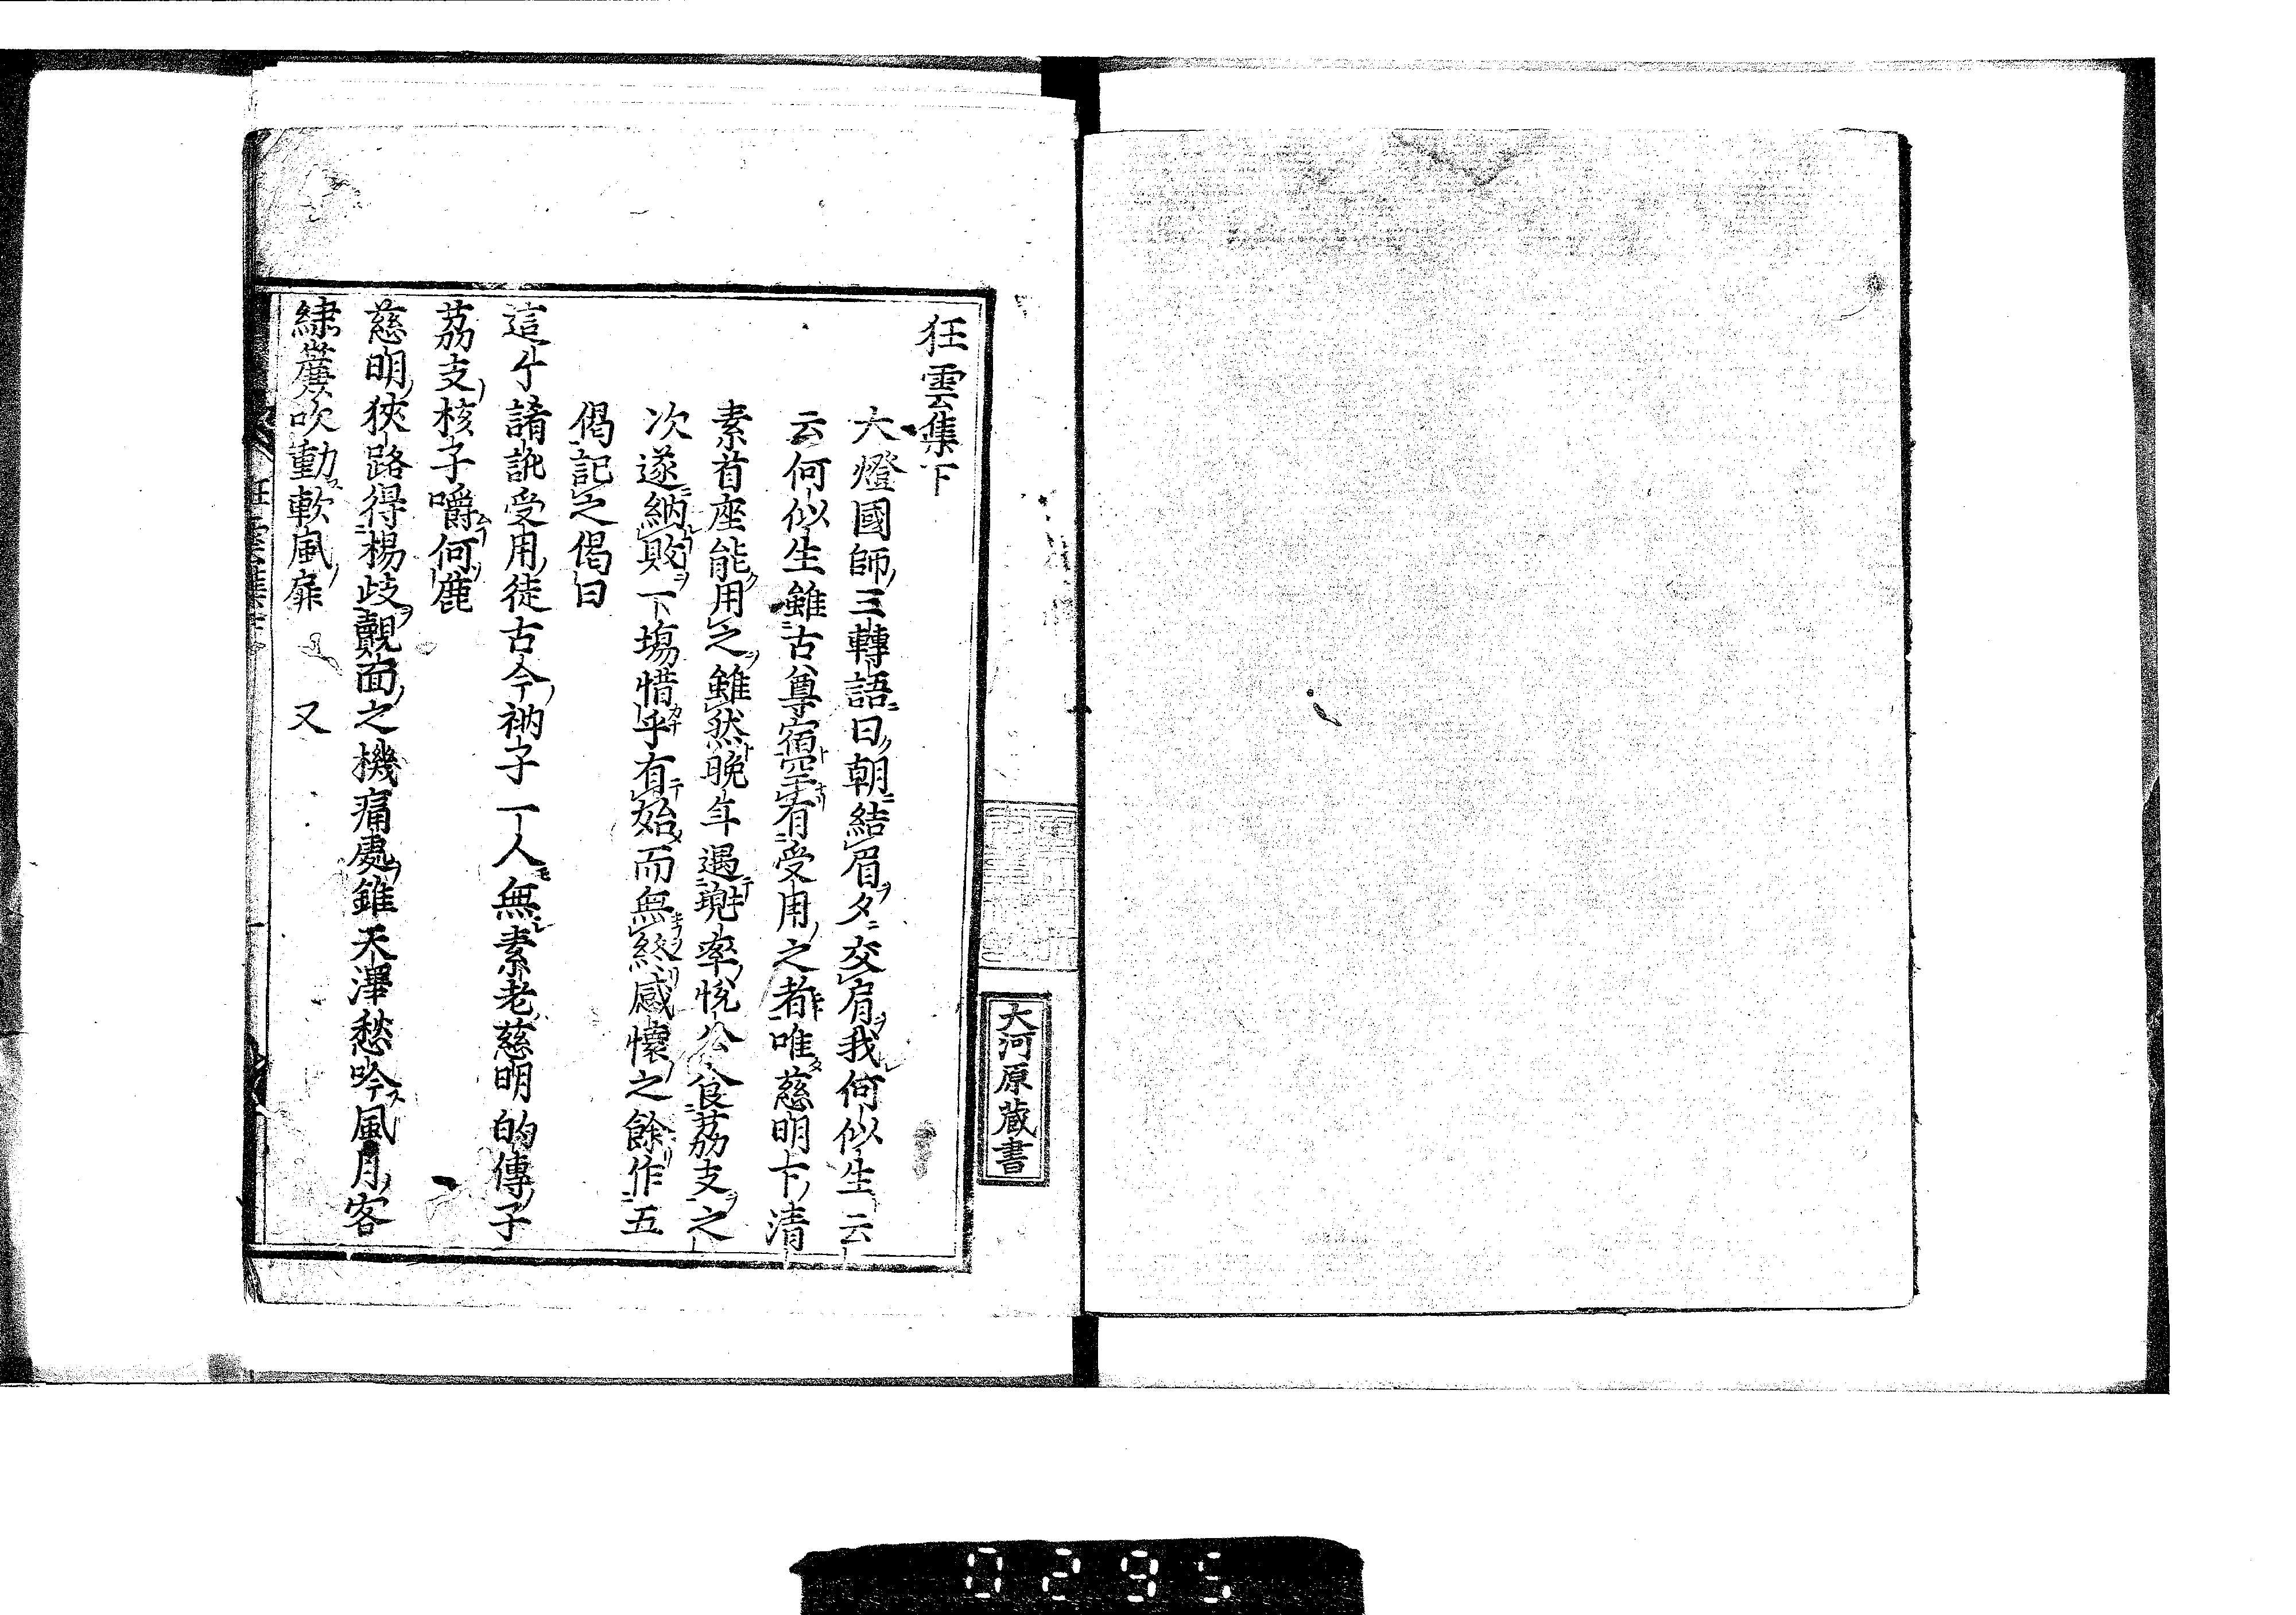 狂雲集下
大燈國師三轉語曰朝結眉夕交肩我何似生云
云何似生雖古尊宿罕有受用之者唯慈明下清
素首座能用之雖然晚年遇兜率悅公食茘支之
次遂納敗下塲惜乎有始而無終感懷之餘作五
偈記之偈曰
這般誵訛受用徒古今衲子一人無素老慈明的傳子
茘支核子嚼何麁
慈明狹路得楊歧覿面之機痛處錐天澤愁吟風月客
綉簾吹動軟風扉　又
大河原蔵書
0295